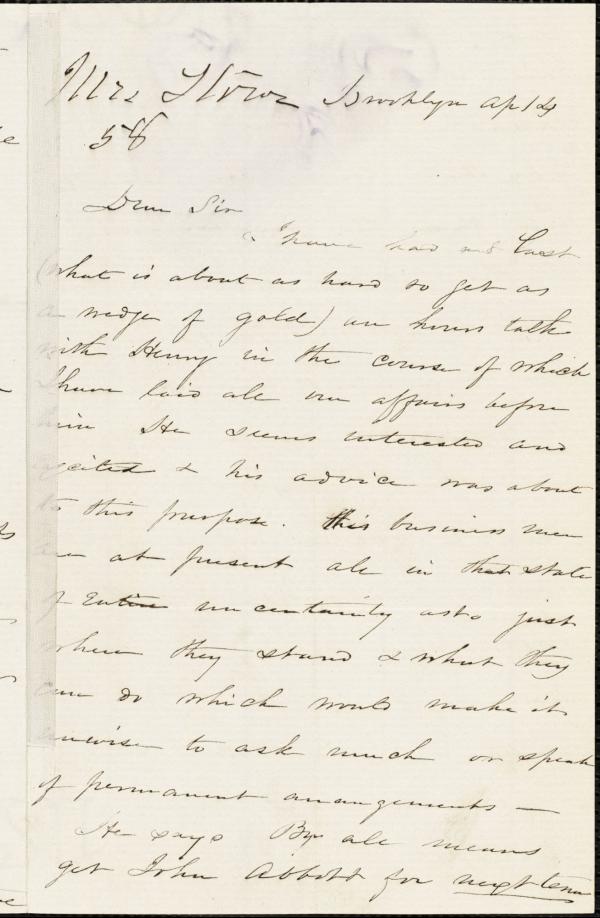 Mrs Stowe Brooklyn Ap 14
58
Dear Sir
I have had at last
(what is about as hard to get as
a wedge of gold) an hours talk
with Henry in the course of which
I have laid all our affairs before
him He seems interested and
excited & his advice was about
to this purpose. This business men
are at present all in that state
of entire uncertainty as to just
where they stand & what they
can do which would make it
unwise to ask much or speak
of permanent arrangements —
He says By all means
get John Abbott for next term